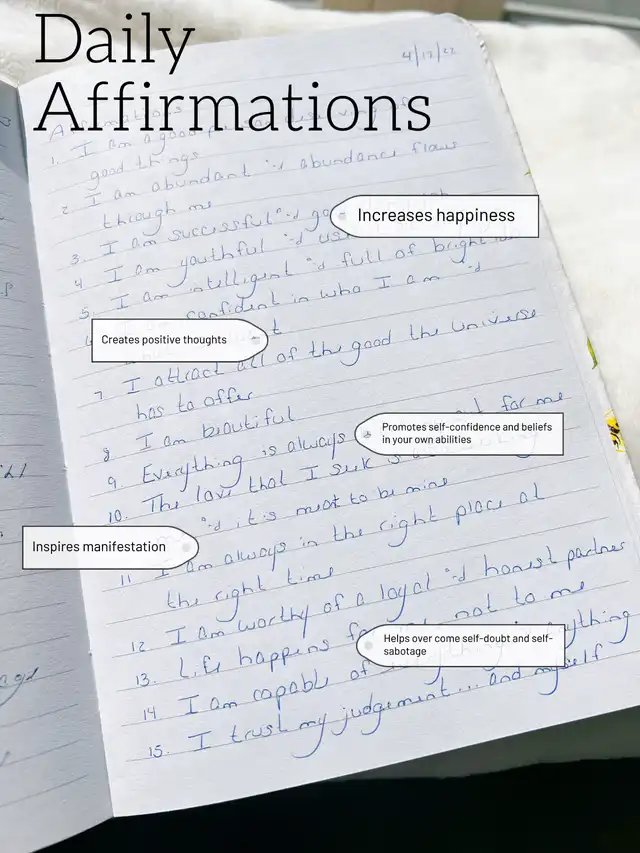 Daily
Affirmations
4/17/22
1. I am a good
good things
2. I am abundant & abundance flows
through me
3. I am successful &
Increases happiness
4 I am youthful &
5. I am intelligent & full of bright
confident in who I am &
Creates positive thoughts
7. I attract all of the good the universe
has to offer
8 I am beautiful
9. Everything is always for me
Promotes self-confidence and beliefs
in your own abilities
10. The love that I seek is
& it's meant to be mine
Inspires manifestation
11 I am always in the right place at
the right time
12 I am worthy of a loyal & honest partner
13. Life happens not to me
Helps over come self-doubt and self-
sabotage
14 I am capable of anything
15. I trust my judgement... and myself